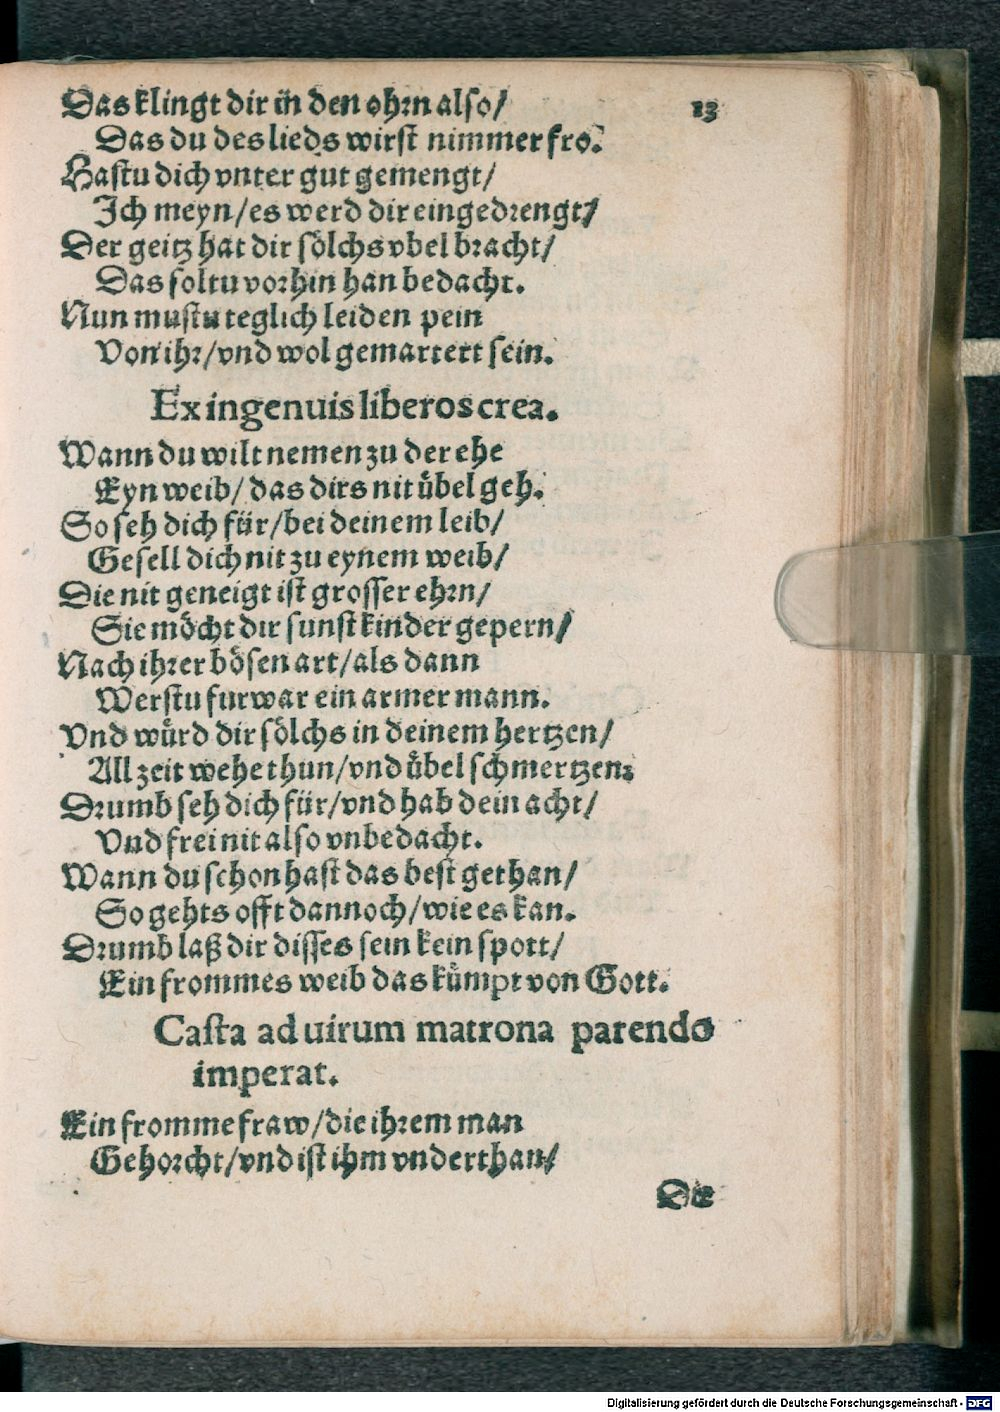 Das klingt dir in den ohrn also/ 13
Das du des lieds wirst nimmer fro.
Hastu dich vnter gut gemengt/
Ich meyn/es werd dir eingedrengt/
Der geitz hat dir soͤlchs vbel bracht/
Das soltu vorhin han bedacht.
Nun mustu teglich leiden pein
Von ihr/vnd wol gemartert sein.
Ex ingenuis liberos crea.
Wann du wilt nemen zu der ehe
Eyn weib/das dirs nit uͤbel geh.
So seh dich fuͤr/bei deinem leib/
Gesell dich nit zu eynem weib/
Die nit geneigt ist grosser ehrn/
Sie moͤcht dir sunst kinder gepern/
Nach ihrer boͤsen art/als dann
Werstu furwar ein armer mann.
Vnd wuͤrd dir soͤlchs in deinem hertzen/
All zeit wehe thun/vnd uͤbel schmertzen.
Drumb seh dich fuͤr/vnd hab dein acht/
Vnd frei nit also vnbedacht.
Wann du schon hast das best gethan/
So gehts offt dannoch/wie es kan.
Drumb laß dir disses sein kein spott/
Ein frommes weib das kuͤmpt von Gott.
Casta ad uirum matrona parendo
imperat.
Ein fromme fraw/die ihrem man
Gehorcht/vnd ist ihm vnderthan/
Die
Digitalisierung gefördert durch die Deutsche Forschungsgemeinschaft - DFG